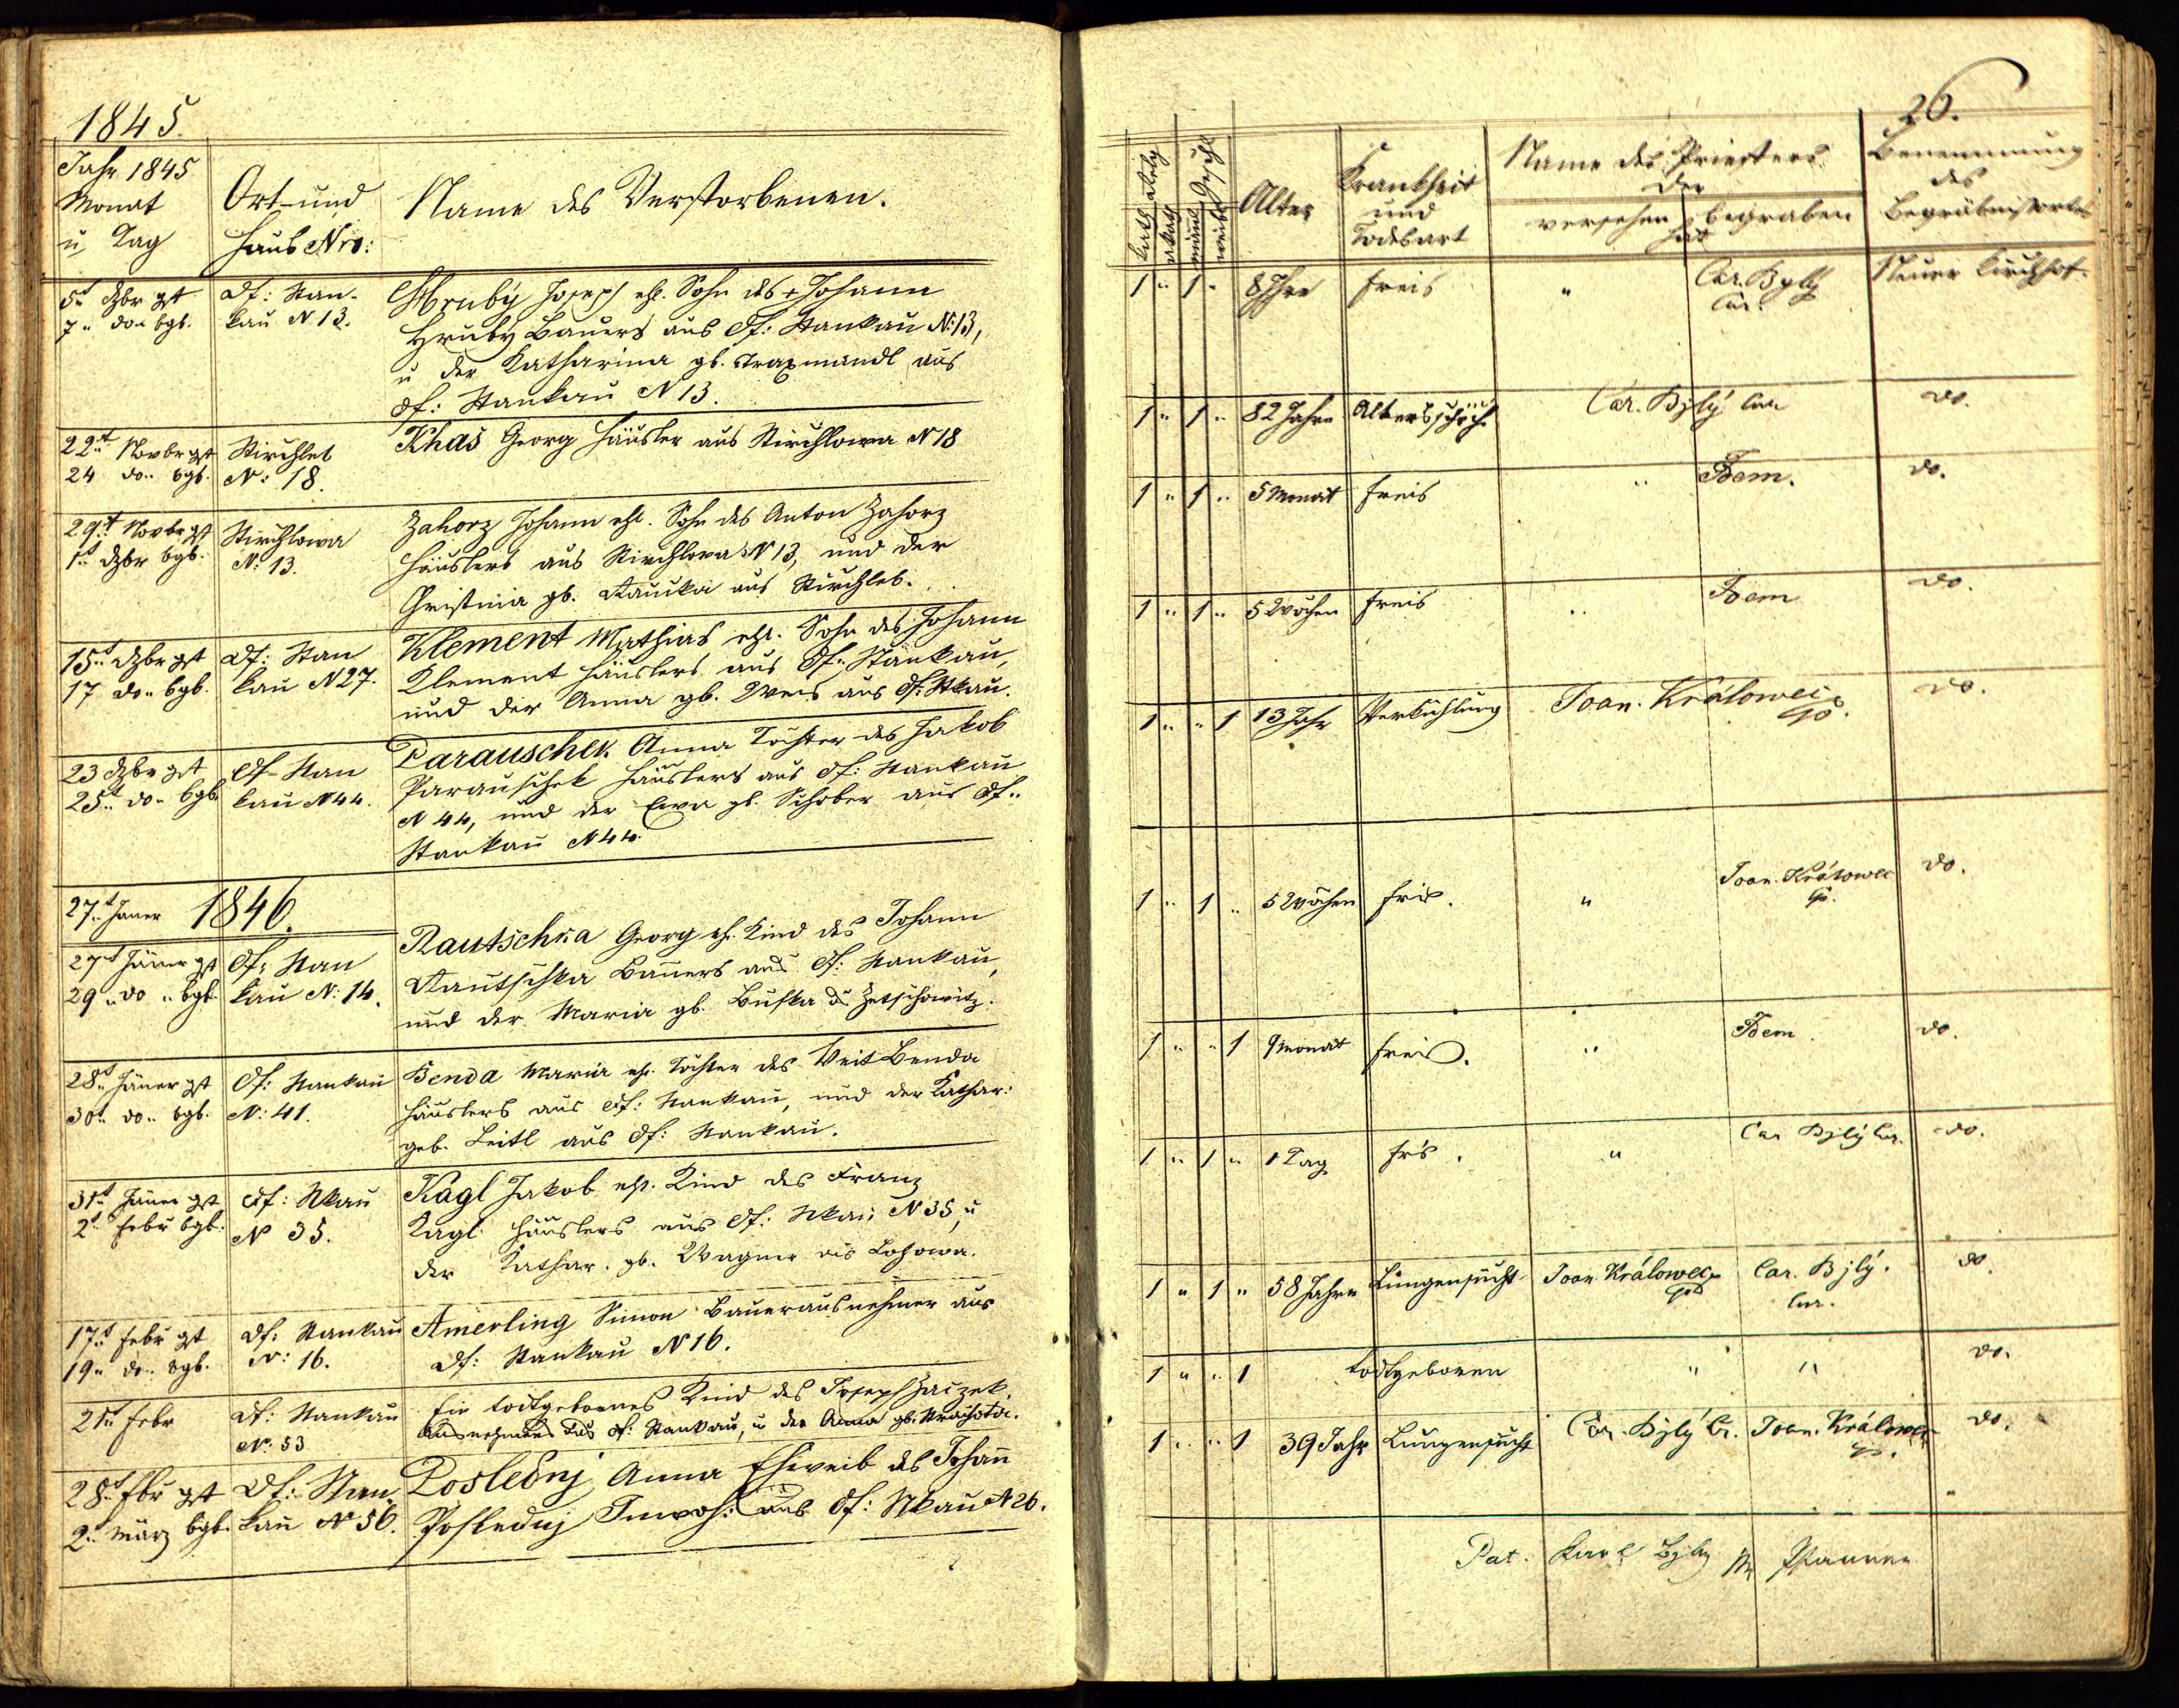 1845.
Jahr 1845
Monat
u. Tag
Ort und
Haus Nro:
Name des Verstorbenen.
5t. Dzbr gst
7.. do.. bgb.
Df: Stan-
kau N 13.
Hruby Joseph eh. Sohn des + Johann
Hruby Bauers aus Df: Stankau N: 13,
u der Katharina gb. Traxmandl aus
Df: Stankau N 13.
22t. Novbr gst
24 do.. bgb.
Stirchleb
N: 18.
Khas Georg Häusler aus Stirchlowa N 18
29t. Novbr gst
1t. Dzbr bgb.
Stirchlowa
N: 13.
Zahorz Johann ehl. Sohn des Anton Zahorz
Häuslers aus Stirchlowa N 13, und der
Christina gb. aus Stirchleb.
15t. Dzbr gst
17 do.. bgb.
Df: Stan
kau N 27.
Klement Mathias ehl. Sohn des Johann
Klement Häuslers aus Df: Stankau,
und der Anna gb. Weis aus Df: Stkau.
23 Dzbr gst
25t. do.. bgb.
Df. Stan
kau N 44.
Parauschek Anna Tochter des Jakob
Parauschek Häuslers aus Df: Stankau
N 44, und der Ewa gb. Schober aus Df..
Stankau N 44.
27t. Janer 1846.
27t Jäner gst
29 .. do .. bgb.
Df: Stan
kau N: 14.
Rautschka Georg eh. Kind des Johann
Rautschka Bauers aus Df: Stankau,
und der Maria gb. Buska Zetschowitz.
28t. Jäner gst
30t. do.. bgb.
Df: Stankau
N: 41.
Benda Maria eh. Tochter des Veit Benda
Häuslers aus Df: Stankau, und der Kathar:
geb. Leitl aus Df: Stankau.
31t. Jäner gst
2t. Febr bgb.
Df: Stkau
N 35.
Kagl Jakob ehl. Kind des Franz
Kagl Häuslers aus Df: Stkau N 35, u
der Kathar. gb. Wagner aus Lohowa.
17t. Febr gst
19.. do.. bgb.
Df: Stankau
N: 16.
Amerling Simon Bauerausnehmer aus
Df: Stankau N 16.
21t. Febr
Df: Stankau
N: 53
Ein todtgebornes Kind des Joseph Zaczek
Ausnehmers aus Df: Stankau, u der Anna gb.
28t. Fbr gst
2t. März bgb.
Df: Stan
kau N 56.
Posledny Anna Eheweib des Johañ
Posledny Inwoh: aus Df: Stkau N 26.
26.
Kath
akath
mänl
weibl
Alter
Krankheit
und
Todesart
Name des Priesters
der
versehen begraben
hat
Benennung
des
Begräbnißortes
1 " 1 " 8 Jhre Freis " Car. Byly
Cur.
Neuer Kirchhof.
1 " 1 " 82 Jahre Altersschwäche Car. Bjlý Cur do.
1 " 1 " 5 Monat Freis " Idem. do.
1 " 1 " 5 Wochen Freis " Idem do.
1 " " 1 13 Jahr Verkühlung Joan. Králowec do.
1 " 1 " 5 Wochen Fris. " Joan. Králowec do.
1 " " 1 9 Monat Freis. " Idem. do.
1 " 1 " 1 Tag Frs. " Car Bjlý Cur. do.
1 " 1 " 58 Jahre Lungensucht Joan Králowec Car. Bjlý.
Cur.
do.
1 " " 1 todtgeboren " " do.
1 " " 1 39 Jahr Lungensucht Car. Bjlý Cr. Joan. Králowec do.
Pat. Karl Byly Pfarrer